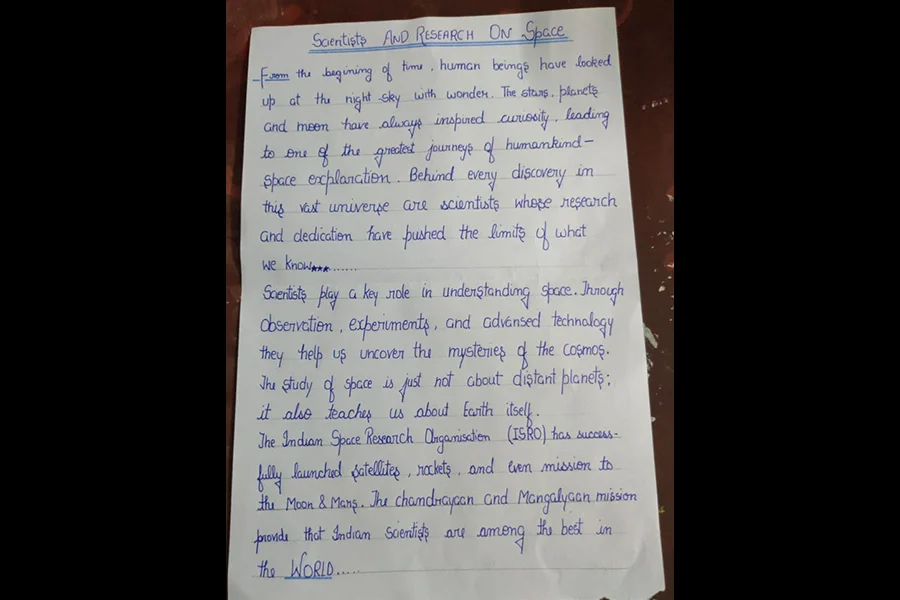 Scientists AND RESEARCH ON Space
From the begining of time, human beings have looked
up at the night sky with wonder. The stars, planets
and moon have always inspired curiosity, leading
to one of the greatest journeys of humankind-
space explanation. Behind every discovery in
this vast universe are scientists whose research
and dedication have pushed the limits of what
we know***......
Scientists play a key role in understanding space. Through
observation, experiments, and advansed technology
they help us uncover the mysteries of the cosmos.
The study of space is just not about distant planets;
it also teaches us about Earth itself.
The Indian Space Research Organisation (ISRO) has success-
fully launched satellites, rockets, and even mission to
the Moon & Mars. The chandrayaan and Mangalyaan mission
provide that Indian scientists are among the best in
the WORLD.....